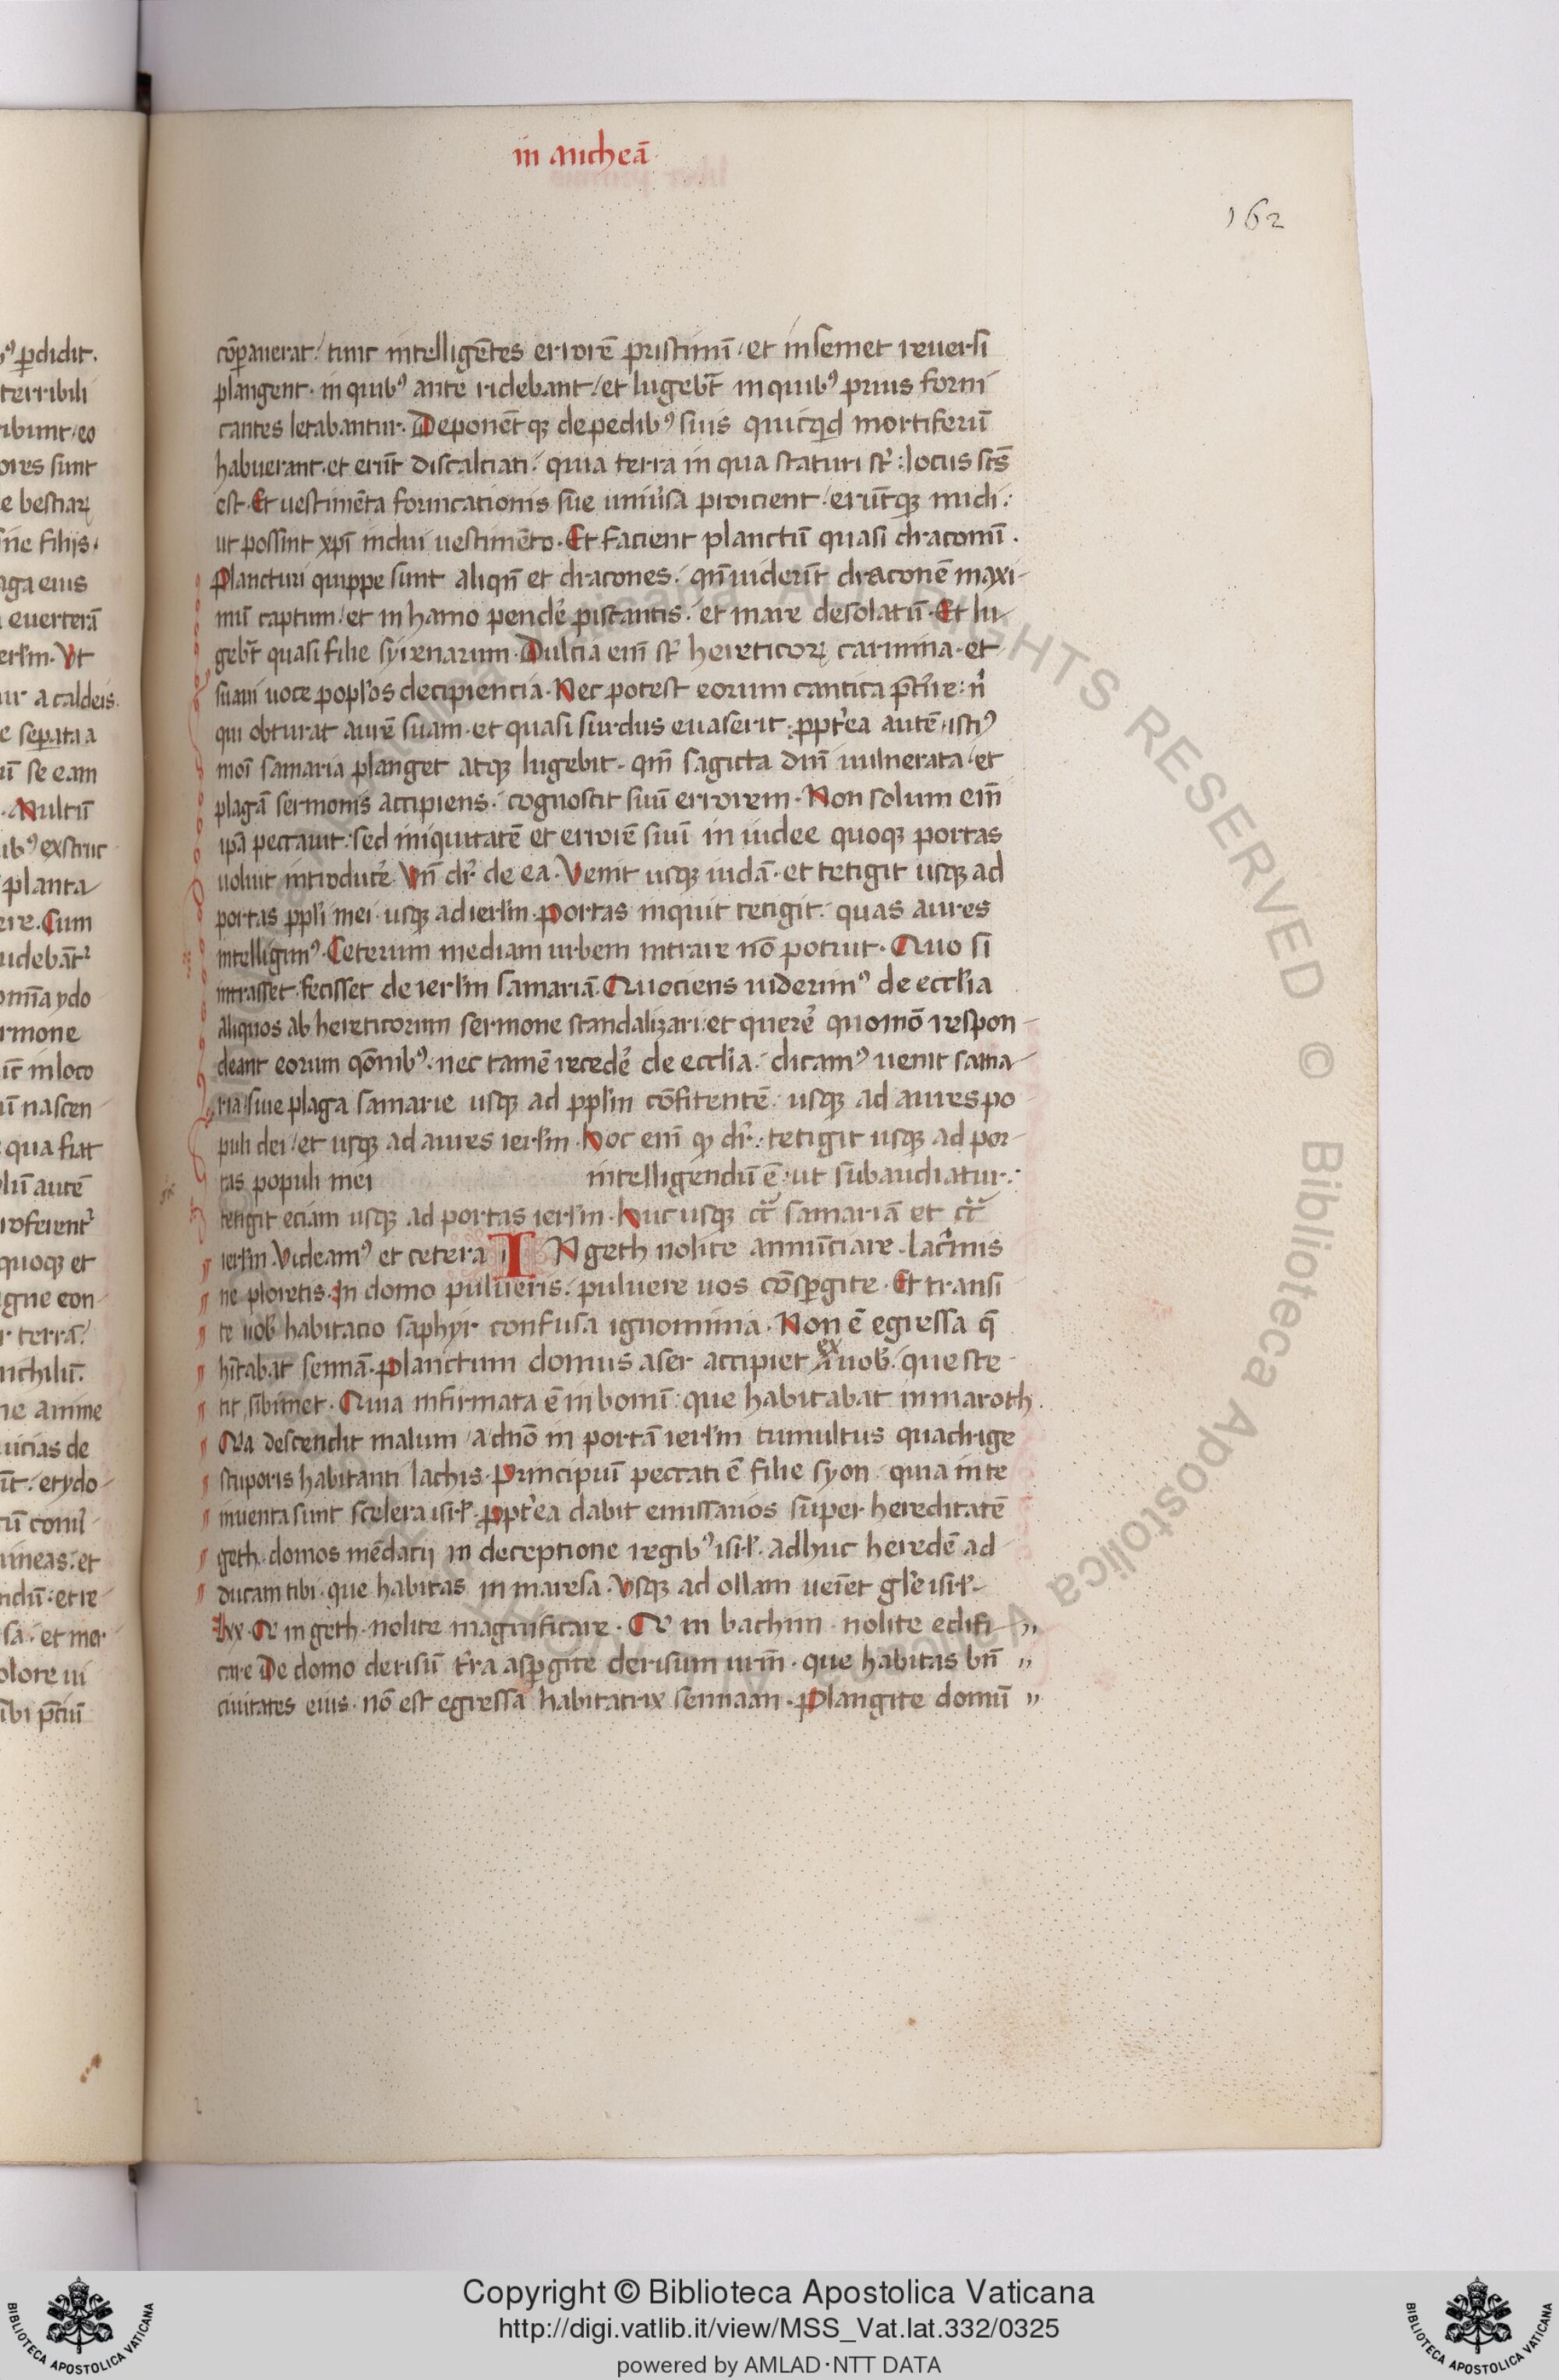 in Micheā
162
cōpauerat. tunc intelligētes errorē pristinū. et in semet reuersi
plangent. in quibꝰ ante ridebant. et lugebt̄ in quibꝰ prius forni
cantes letabantur. Deponēt qꝫ de pedibꝰ suis quicqͥd mortiferū
habuerant. et erūt discalciati. quia terra in qua staturi st̄. locus scs̄
est. Et uestimēta fornicationis sue uniūsa proicient. erūtqꝫ nudi.
ut possint xpī indui uestimēto. Et facient planctū quasi draconū.
Plancturi quippe sunt aliqn̄ et dracones. qn̄ uiderīt draconē maxi-
mū captum. et in hamo pendē piscantis. et mare desolatū. Et lu-
gebt̄ quasi filie syrenarum. Dulcia enī st̄ hereticoꝝ carmina. et
suaui uoce poplōs decipiencia. Nec potest eorum cantica p̄t̄ire. n̄
qui obturat aurē suam. et quasi surdus euaserit. ꝓpt̄ea autē istiꝰ
moī samaria planget atqꝫ lugebit. qm̄ sagicta dn̄i uulnerata. et
plagā sermonis accipiens. cognoscit suū errorem. Non solum enī
ipā peccauit. sed iniquitatē et errorē suū in iudee quoqꝫ portas
uoluit introducē. Vn̄ dr̄ de ea. Venit usqꝫ iudā. et tetigit usqꝫ ad
portas ppl̄i mei. usqꝫ ad ierl̄m. Portas inquit tetigit. quas aures
intelligimꝰ. Ceterum mediam urbem intrare nō potuit. Quo si
intrasset. fecisset de ierl̄m samariā. Quociens uiderimꝰ de eccl̄ia
aliquos ab hereticorum sermone scandalizari. et querē quomō respon-
deant eorum qōnibꝰ. nec tamē recedē de eccl̄ia. dicamꝰ uenit sama-
ria. siue plaga samarie usqꝫ ad ppl̄m cōfitentē. usqꝫ ad aures po
puli dei. et usqꝫ ad aures ierl̄m. Hoc enī qͦ dr̄. tetigit usqꝫ ad por-
tas populi mei intelligendū ē. ut subaudiatur.
tetigit eciam usqꝫ ad portas ierl̄m. Huc usqꝫ cc̄ samariā et cc̄
ierl̄m. Videamꝰ et cetera IN geth nolite annūciare. lacͥmis
ne ploretis. In domo pulueris. puluere uos cōspgite. Et transi
te uob̄ habitacio saphyr confusa ignominia. Non ē egressa q̄
hītabat sennā. Planctum domus aser accipiet ex uob̄. que ste-
tit sibimet. Quia infirmata ē in bonū. que habitabat in maroth.
Qia descendit malum a dn̄o in portā ierl̄m tumultus quadrige
stuporis habitanti lachis. Principiū peccati ē filie syon. quia in te
inuenta sunt scelera isrl̄. ꝓpt̄ea dabit emissarios super hereditatē
geth. domos mēdacij in deceptione regibꝰ isrl̄. adhuc heredē ad-
ducam tibi. que habitas in maresa. Vsqꝫ ad ollam ueīet gl̄e isrl̄.
lxx. Qͥ in geth. nolite magnificare. Qͥ in bachim. nolite edifi-
care De domo derisū t̄ra aspgite derisum urm̄. que habitas bn̄
ciuitates eius. nō est egressa habitatrix sennaan. Plangite domū
Copyright © Biblioteca Apostolica Vaticana
http://digi.vatlib.it/view/MSS_Vat.lat.332/0325
powered by AMLAD·NTT DATA